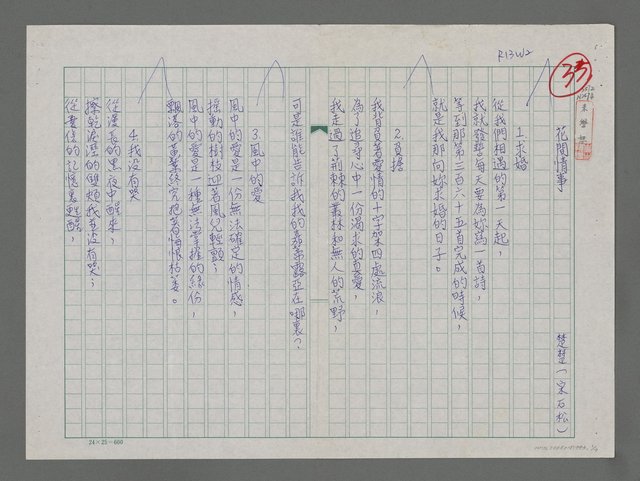 R13W2
花間情事
楚楚(宋石松)
1.求婚
從我們相遇的第一天起,
我就發誓每天要為妳寫一首詩,
等到那第三百六十五首完成的時候,
就是我那向妳求婚的日子。
2.負擔
我背負著愛情的十字架四處流浪,
為了追尋心中一份渴求的真愛,
我走過了荊棘的叢林和無人的荒野,
可是誰能告訴我我的
3.風中的愛
風中的愛是一份無法確定的情感,
搖動的樹枝迎著風兒輕顫;
風中的愛是一種無法掌握的緣份,
飄落的黃葉終究抱著悔恨枯萎。
4.我沒有哭
從漫長的黑夜中醒來,
擦乾淚濕的雙頰我並沒有哭;
從
24×25=600